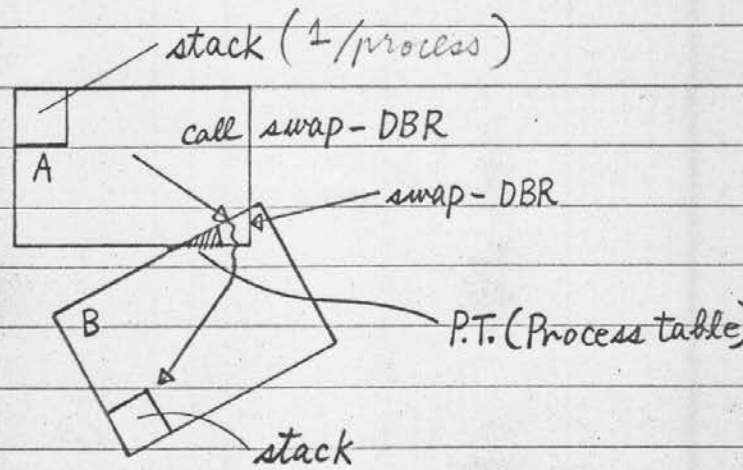 stack (1/process)
call swap-DBR
A
swap-DBR
B
P.T. (Process table)
stack